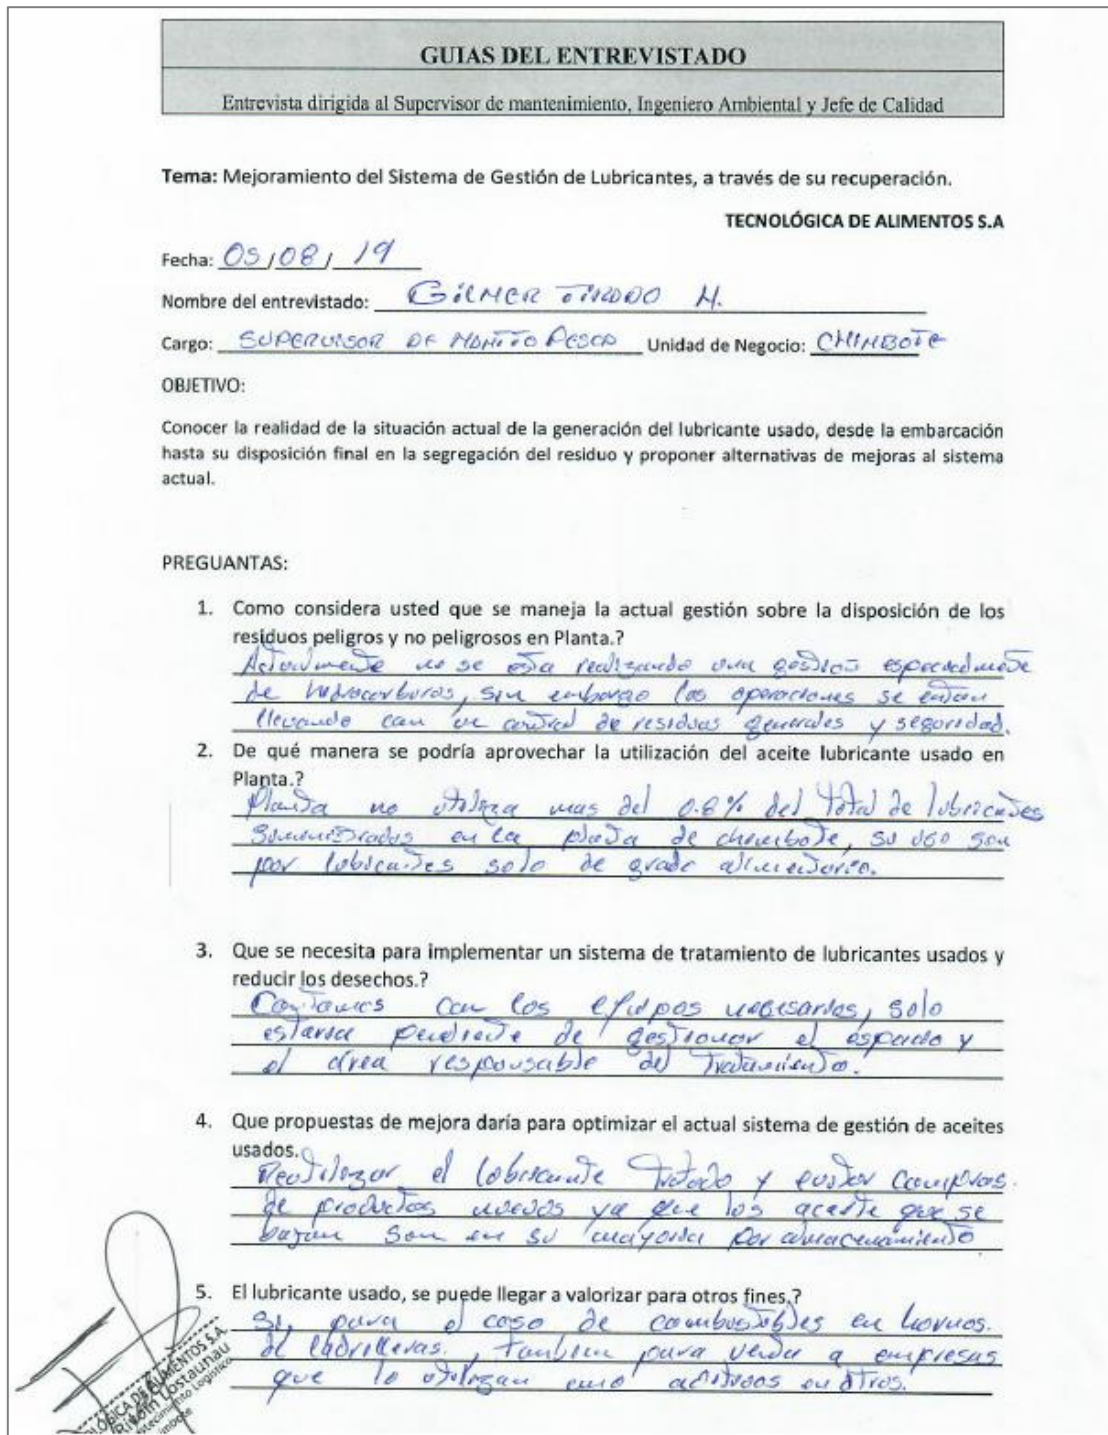 GUIAS DEL ENTREVISTADO
Entrevista dirigida al Supervisor de mantenimiento, Ingeniero Ambiental y Jefe de Calidad
Tema: Mejoramiento del Sistema de Gestión de Lubricantes, a través de su recuperación.
TECNOLÓGICA DE ALIMENTOS S.A
Fecha: 05/08/19
Nombre del entrevistado: GILMER TIRADO H.
Cargo: SUPERVISOR DE MANTTO PESCA Unidad de Negocio: CHIMBOTE
OBJETIVO:
Conocer la realidad de la situación actual de la generación del lubricante usado, desde la embarcación
hasta su disposición final en la segregación del residuo y proponer alternativas de mejoras al sistema
actual.
PREGUANTAS:
1. Como considera usted que se maneja la actual gestión sobre la disposición de los
residuos peligros y no peligrosos en Planta.?
Actualmente no se esta realizando una gestion especialmente
de hidrocarburos, sin embargo las operaciones se estan
llevando con un control de residuos generales y seguridad.
2. De qué manera se podría aprovechar la utilización del aceite lubricante usado en
Planta.?
Planta no utiliza mas del 0.8% del total de lubricantes
suministrados en la planta de chimbote, su uso son
por lubricantes solo de grado alimentario.
3. Que se necesita para implementar un sistema de tratamiento de lubricantes usados y
reducir los desechos.?
Contamos con los equipos necesarios, solo
estaria pendiente de gestionar el espacio y
el área responsable del tratamiento.
4. Que propuestas de mejora daría para optimizar el actual sistema de gestión de aceites
usados.
Reutilizar el lubricante tratado y evitar compras
de productos nuevos ya que los aceite que se
bajan son en su mayoria por almacenamiento
5. El lubricante usado, se puede llegar a valorizar para otros fines.?
Si, para el caso de combustibles en hornos
de ladrilleras, tambien para venta a empresas
que lo utilizan como aditivos en otros.
ALIMENTOS S.A.
Lostaunau
Logístico